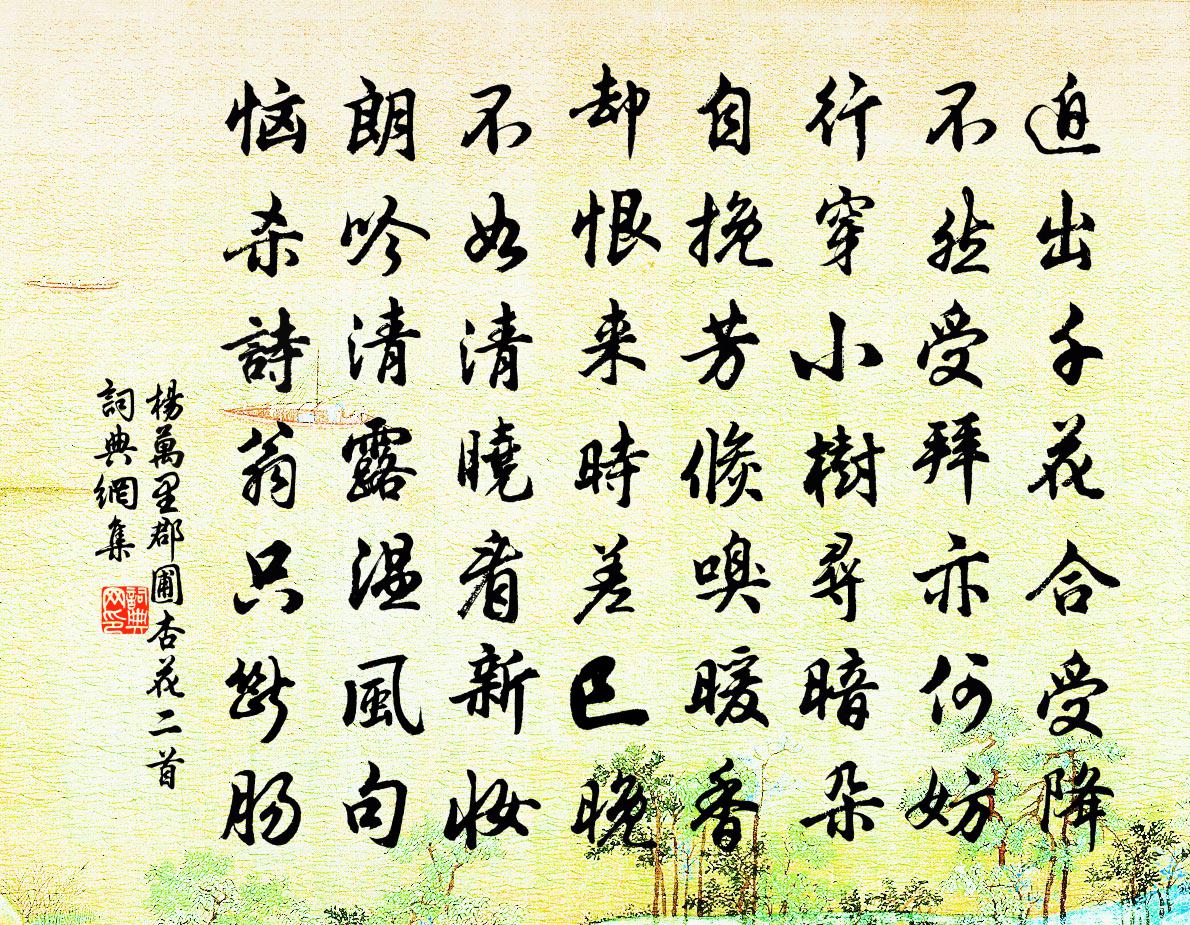 迫出千花合受降
不然受拜亦何妨
行穿小樹尋暗朵
自挽芳條嗅暖香
却恨来時差已晚
不如清曉看新妝
朗吟清露温風句
恼杀詩翁只斷肠
楊萬里郡圃杏花二首
詞典網集
詞典网印